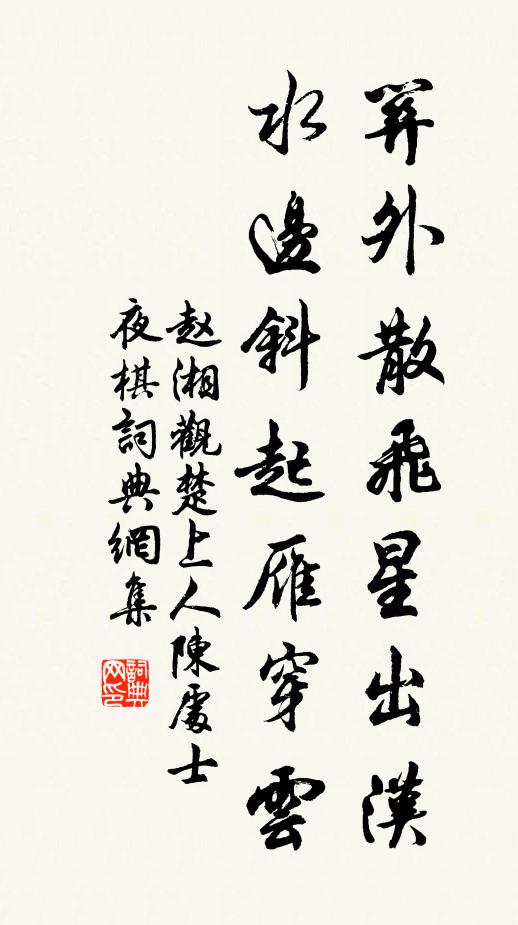 筭外散飛星出漢
水邊斜起雁穿雲
赵湘觀楚上人陳處士
夜棋詞典網集
詞典
网印